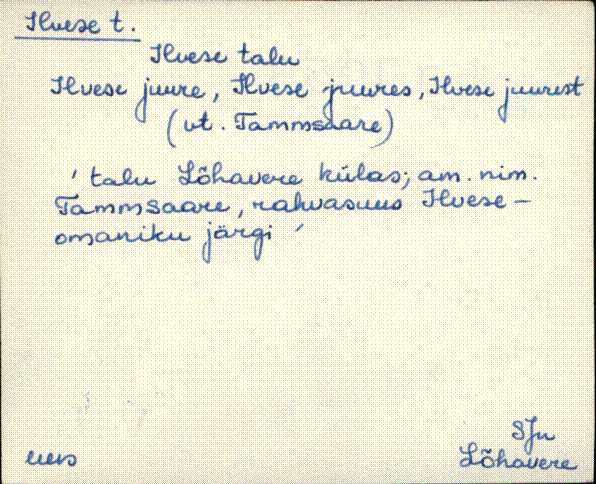 Ilvese t.
Ilvese talu
Ilvese juure, Ilvese juures, Ilvese juurest
(vt. Tammsaare)
' talu Lõhavere külas; am. nim.
Tammsaare, rahvasuus Ilvese –
omaniku järgi '
SJn
uus
Lõhavere